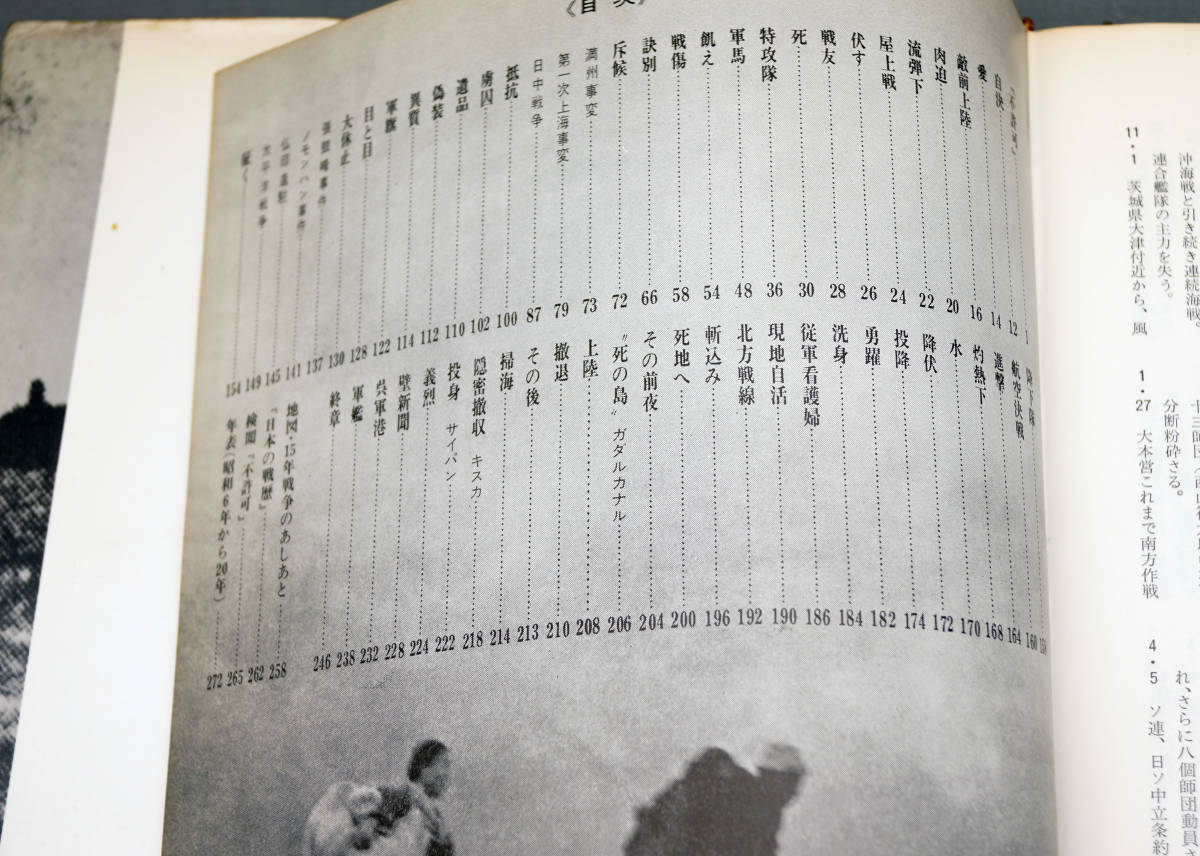 沖海戦と引き続き連続海戦
連合艦隊の主力を失う。
11・1 茨城県大津付近から、風
分断粉砕さる。
1・27 大本営これまで南方作戦
れ、さらに八個師団動員さ
4・5 ソ連、日ソ中立条約
《目次》
「不許可」 1
自決 12
愛 14
敵前上陸 16
肉迫 20
流弾下 22
屋上戦 24
伏す 26
戦友 28
死 30
特攻隊 36
軍馬 48
飢え 54
戦傷 58
訣別 66
斥候 72
満州事変 73
第一次上海事変 79
日中戦争 87
抵抗 100
虜囚 102
遺品 110
偽装 112
異質 114
軍旗 122
目と目 128
大休止 130
張鼓峰事件 137
ノモンハン事件 141
仏印進駐 145
太平洋戦争 149
征く 154
降下隊 158
航空決戦 160
進撃 164
灼熱下 168
水 170
降伏 172
投降 174
勇躍 182
洗身 184
従軍看護婦 186
現地自活 190
北方戦線 192
斬込み 196
死地へ 200
その前夜 204
〝死の島〟 ガダルカナル 206
上陸 208
撤退 210
その後 213
掃海 214
隠密撤収 キスカ 218
投身 サイパン 222
義烈 224
壁新聞 228
呉軍港 232
軍艦 238
終章 246
地図・15年戦争のあしあと 258
『日本の戦歴』 262
検閲『不許可』 265
年表(昭和6年から20年) 272